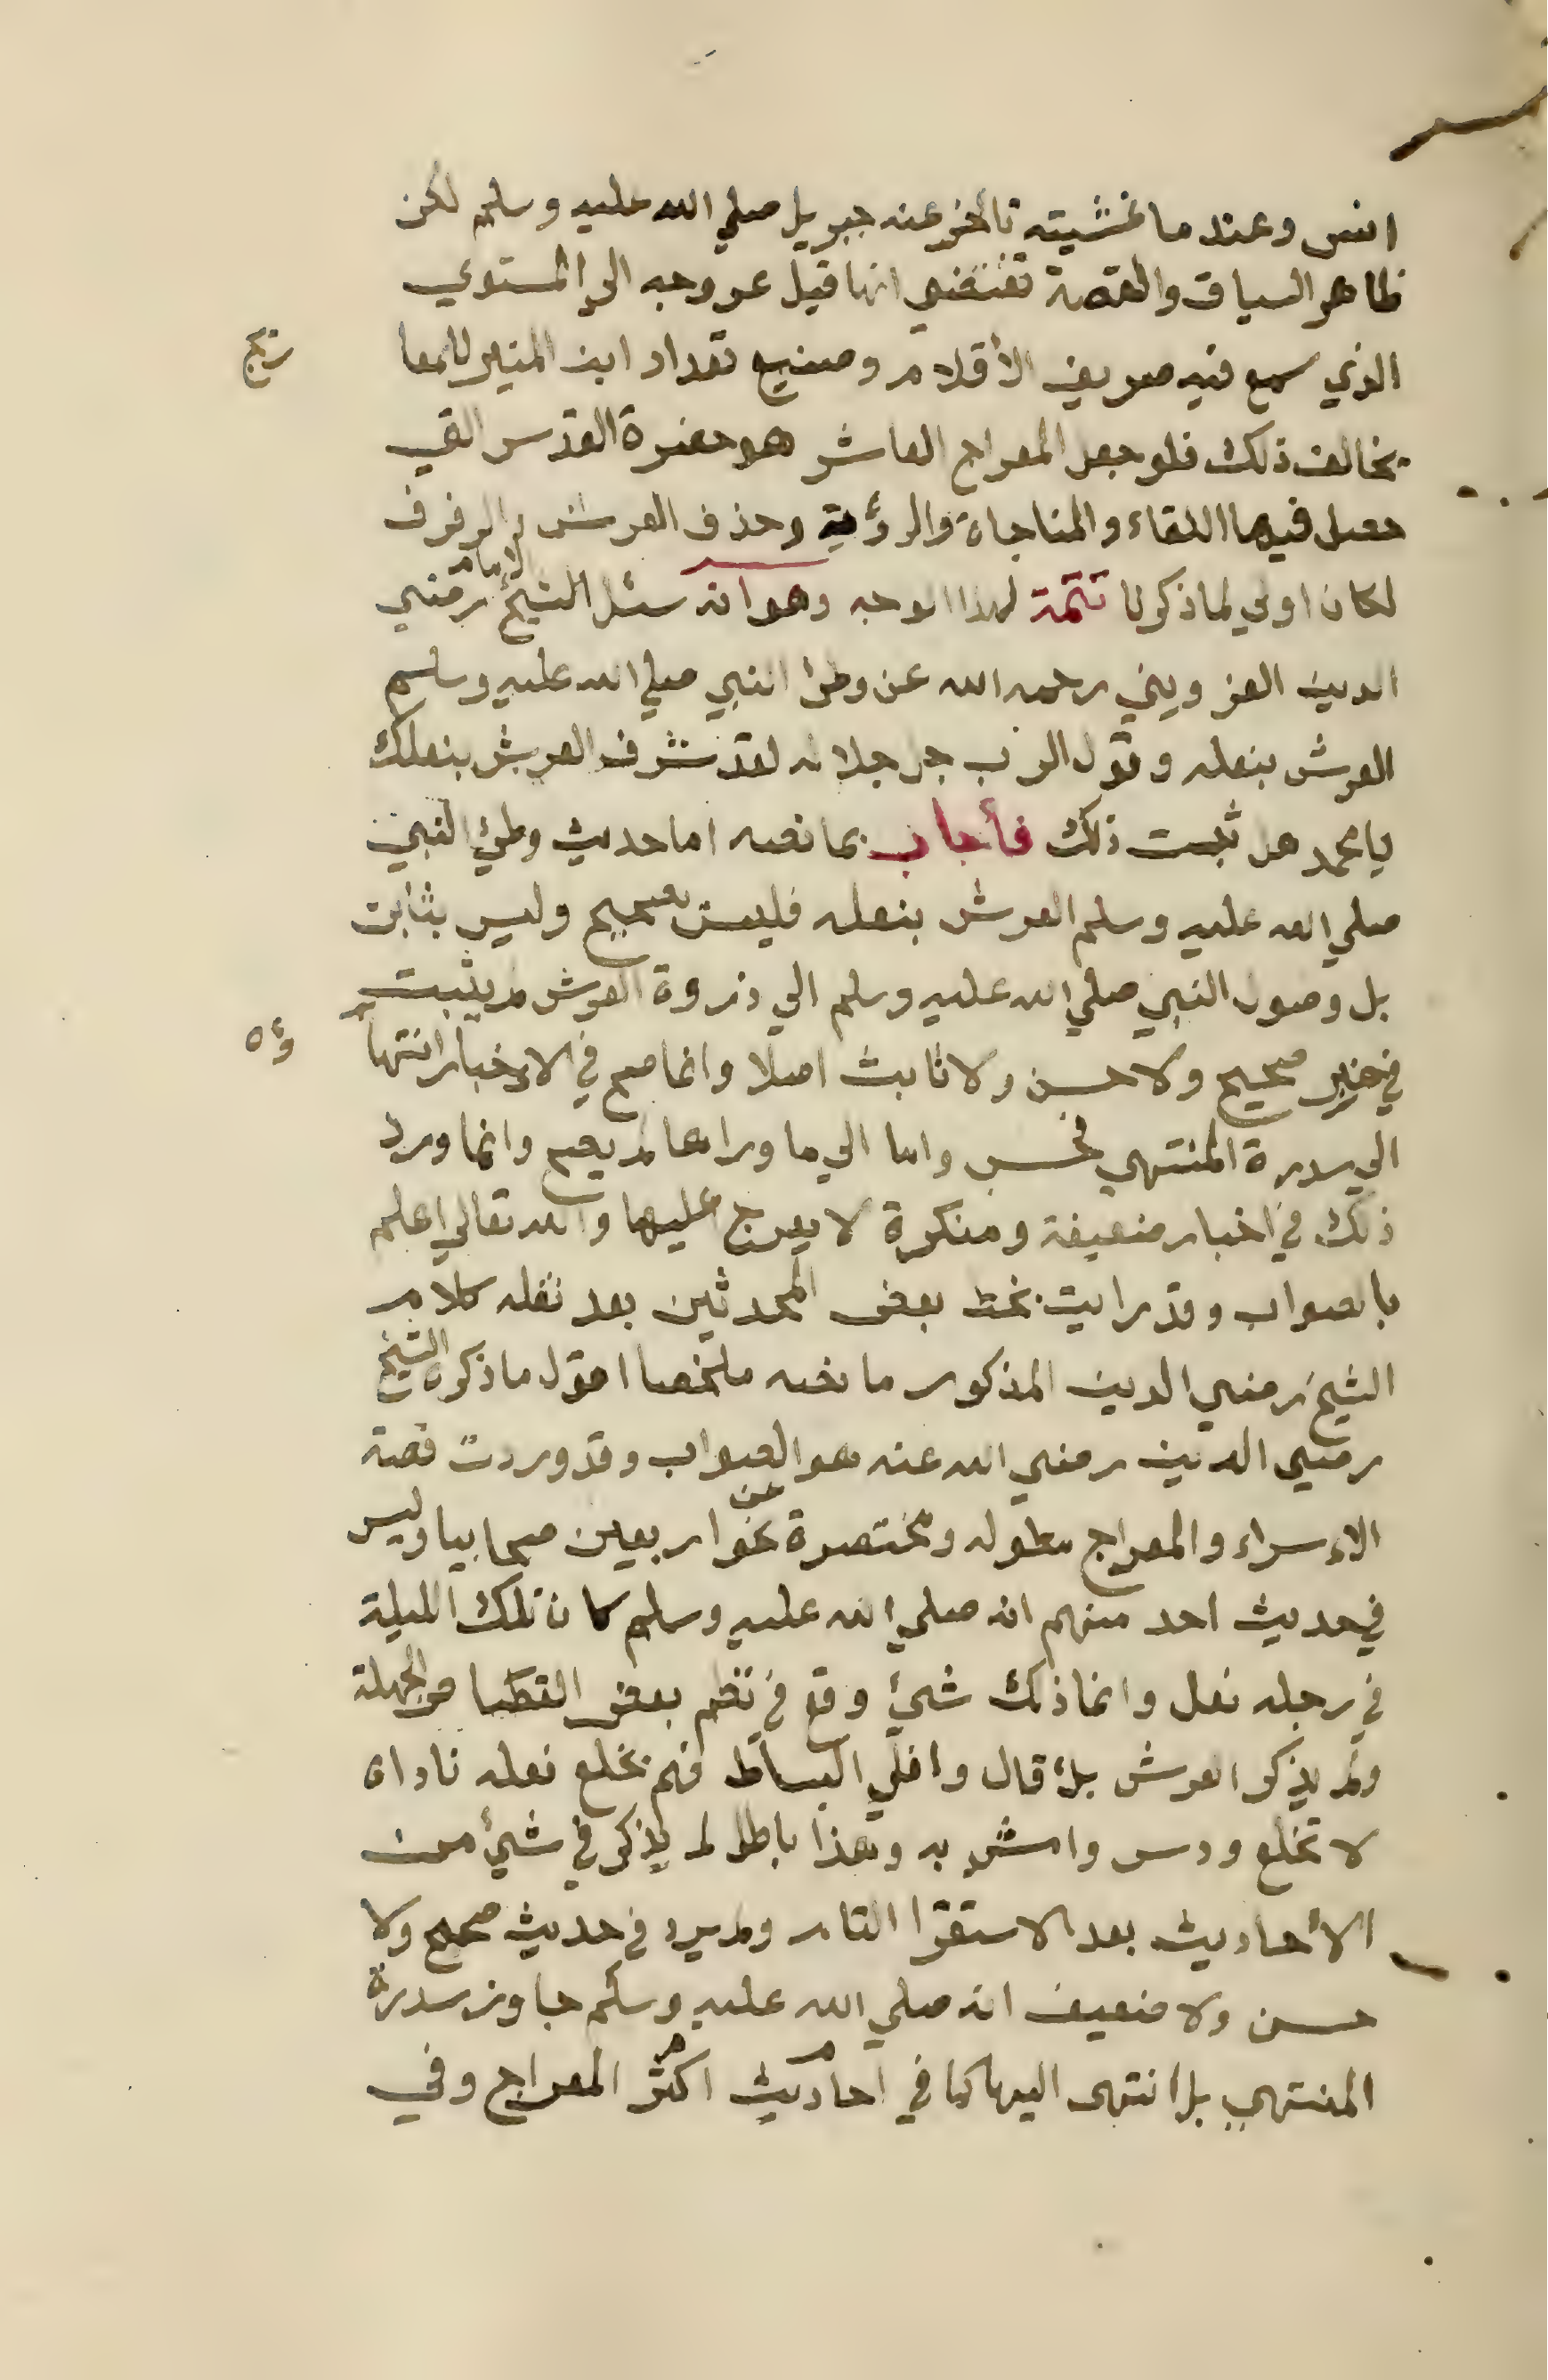 انس وعند ما غشيته تأخر عنه جبريل صلي الله عليه وسلم لكن
ظاهر السياق والقصة تقتضي انها قبل عروجه الي المستوي
الذي سمع فيه صريف الأقلام وصنيع تعداد ابن المنير للمعا
ريج
يخالف ذلك فلو جعل المعراج العاشر هو حضرة القدس التي
حصل فيها اللقاء والمناجاة والرؤية وحذف العرش والرفرف
لكان اولي لما ذكرنا تتمة لهذا الوجه وهو انه سئل الشيخ الامام رضي
الدين القزويني رحمه الله عن وطئ النبي صلي الله عليه وسلم
العرش بنعله وقول الرب جل جلاله لقد شرف العرش بنعلك
يا محمد هل ثبت ذلك فأجاب بما نصه اما حديث وطئ النبي
صلي الله عليه وسلم العرش بنعله فليس بصحيح وليس بثابت
بل وصول النبي صلي الله عليه وسلم الي ذروة العرش لم يثبت
في خبر صحيح ولا حسن ولا ثابت اصلا وانما صح في الاخبار انتها
ؤه
الي سدرة المنتهي فحسب واما الي ما وراها لم يصح وانما ورد
ذلك في اخبار ضعيفة ومنكرة لا يعرج عليها والله تعالي اعلم
بالصواب وقد رايت بخط بعض المحدثين بعد نقله كلام
الشيخ رضي الدين المذكور ما نصه ملخصا اقول ما ذكره الشيخ
رضي الدين رضي الله عنه هو الصواب وقد وردت قصة
الاسراء والمعراج مطوله ومختصرة عن نحو اربعين صحابيا وليس
في حديث احد منهم انه صلي الله عليه وسلم كان تلك الليلة
في رجله نعل وانما ذلك شيئ وقع في نظم بعض القصاص الجهلة
ولم يذكر العرش بل قال وافي البساط فهم بخلع نعله ناداه
لا تخلع ودس وامش به وهذا باطل لم يذكر في شيئ من
الأحاديث بعد الاستقرا التام ولم يرد في حديث صحيح ولا
حسن ولا ضعيف انه صلي الله عليه وسلم جاوز سدرة
المنتهي بل انتهى اليها كما في احاديث اكثر المعراج وفي